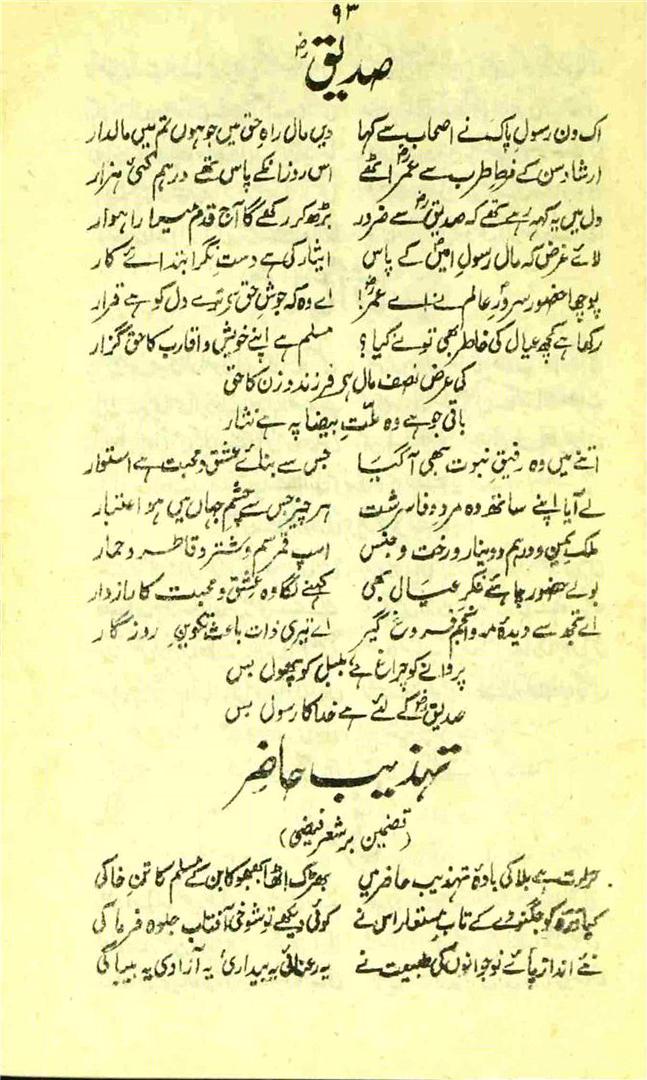 ۹۳
صدیقؓ
اک دن رسول پاک نے اصحاب سے کہا دیں مال راہِ حق میں جو ہوں تم میں مالدار
ارشاد سن کے فرطِ طرب سے عمرؓ اٹھے اس روز ان کے پاس تھے درہم کئی ہزار
دل میں یہ کہہ رہے تھے کہ صدیقؓ سے ضرور بڑھ کر رکھے گا آج قدم میرا راہوار
لائے غرض کہ مال رسولِ امیںؐ کے پاس ایثار کی ہے دست نگر ابتدائے کار
پوچھا حضور سرورِ عالم نے اے عمرؓ! اے وہ کہ جوشِ حق سے ترے دل کو ہے قرار
رکھا ہے کچھ عیال کی خاطر بھی تونے کیا؟ مسلم ہے اپنے خویش و اقارب کا حق گزار
کی عرض نصف مال ہے فرزند و زن کا حق
باقی جو ہے وہ ملّتِ بیضا پہ ہے نثار
اتنے میں وہ رفیقِ نبوت بھی آگیا جس سے بنائے عشق و محبت ہے استوار
لے آیا اپنے ساتھ وہ مردِ وفا سرشت ہر چیز جس سے چشمِ جہاں میں ہو اعتبار
ملکِ یمین و درہم و دینار و رخت و جنس اسپِ قمر سم و شتر و قاطر و حمار
بولے حضور چاہئے فکرِ عیال بھی کہنے لگا وہ عشق و محبت کا رازدار
اے تجھ سے دیدۂ مہ و انجم فروغ گیر اے تیری ذات باعثِ تکوینِ روزگار
پروانے کو چراغ ہے بلبل کو پھول بس
صدیقؓ کے لئے ہے خدا کا رسول بس
تہذیبِ حاضر
(تضمین بر شعرِ فیضی)
حرارت ہے بلا کی بادۂ تہذیبِ حاضر میں بھڑک اٹھا بھبھوکا بن کے مسلم کا تنِ خاکی
کیا ذرّہ کو جگنو دے کے تابِ مستعار اس نے کوئی دیکھے تو شوخی آفتابِ جلوہ فرما کی
نئے انداز پائے نوجوانوں کی طبیعت نے یہ رعنائی یہ بیداری یہ آزادی یہ بیباکی